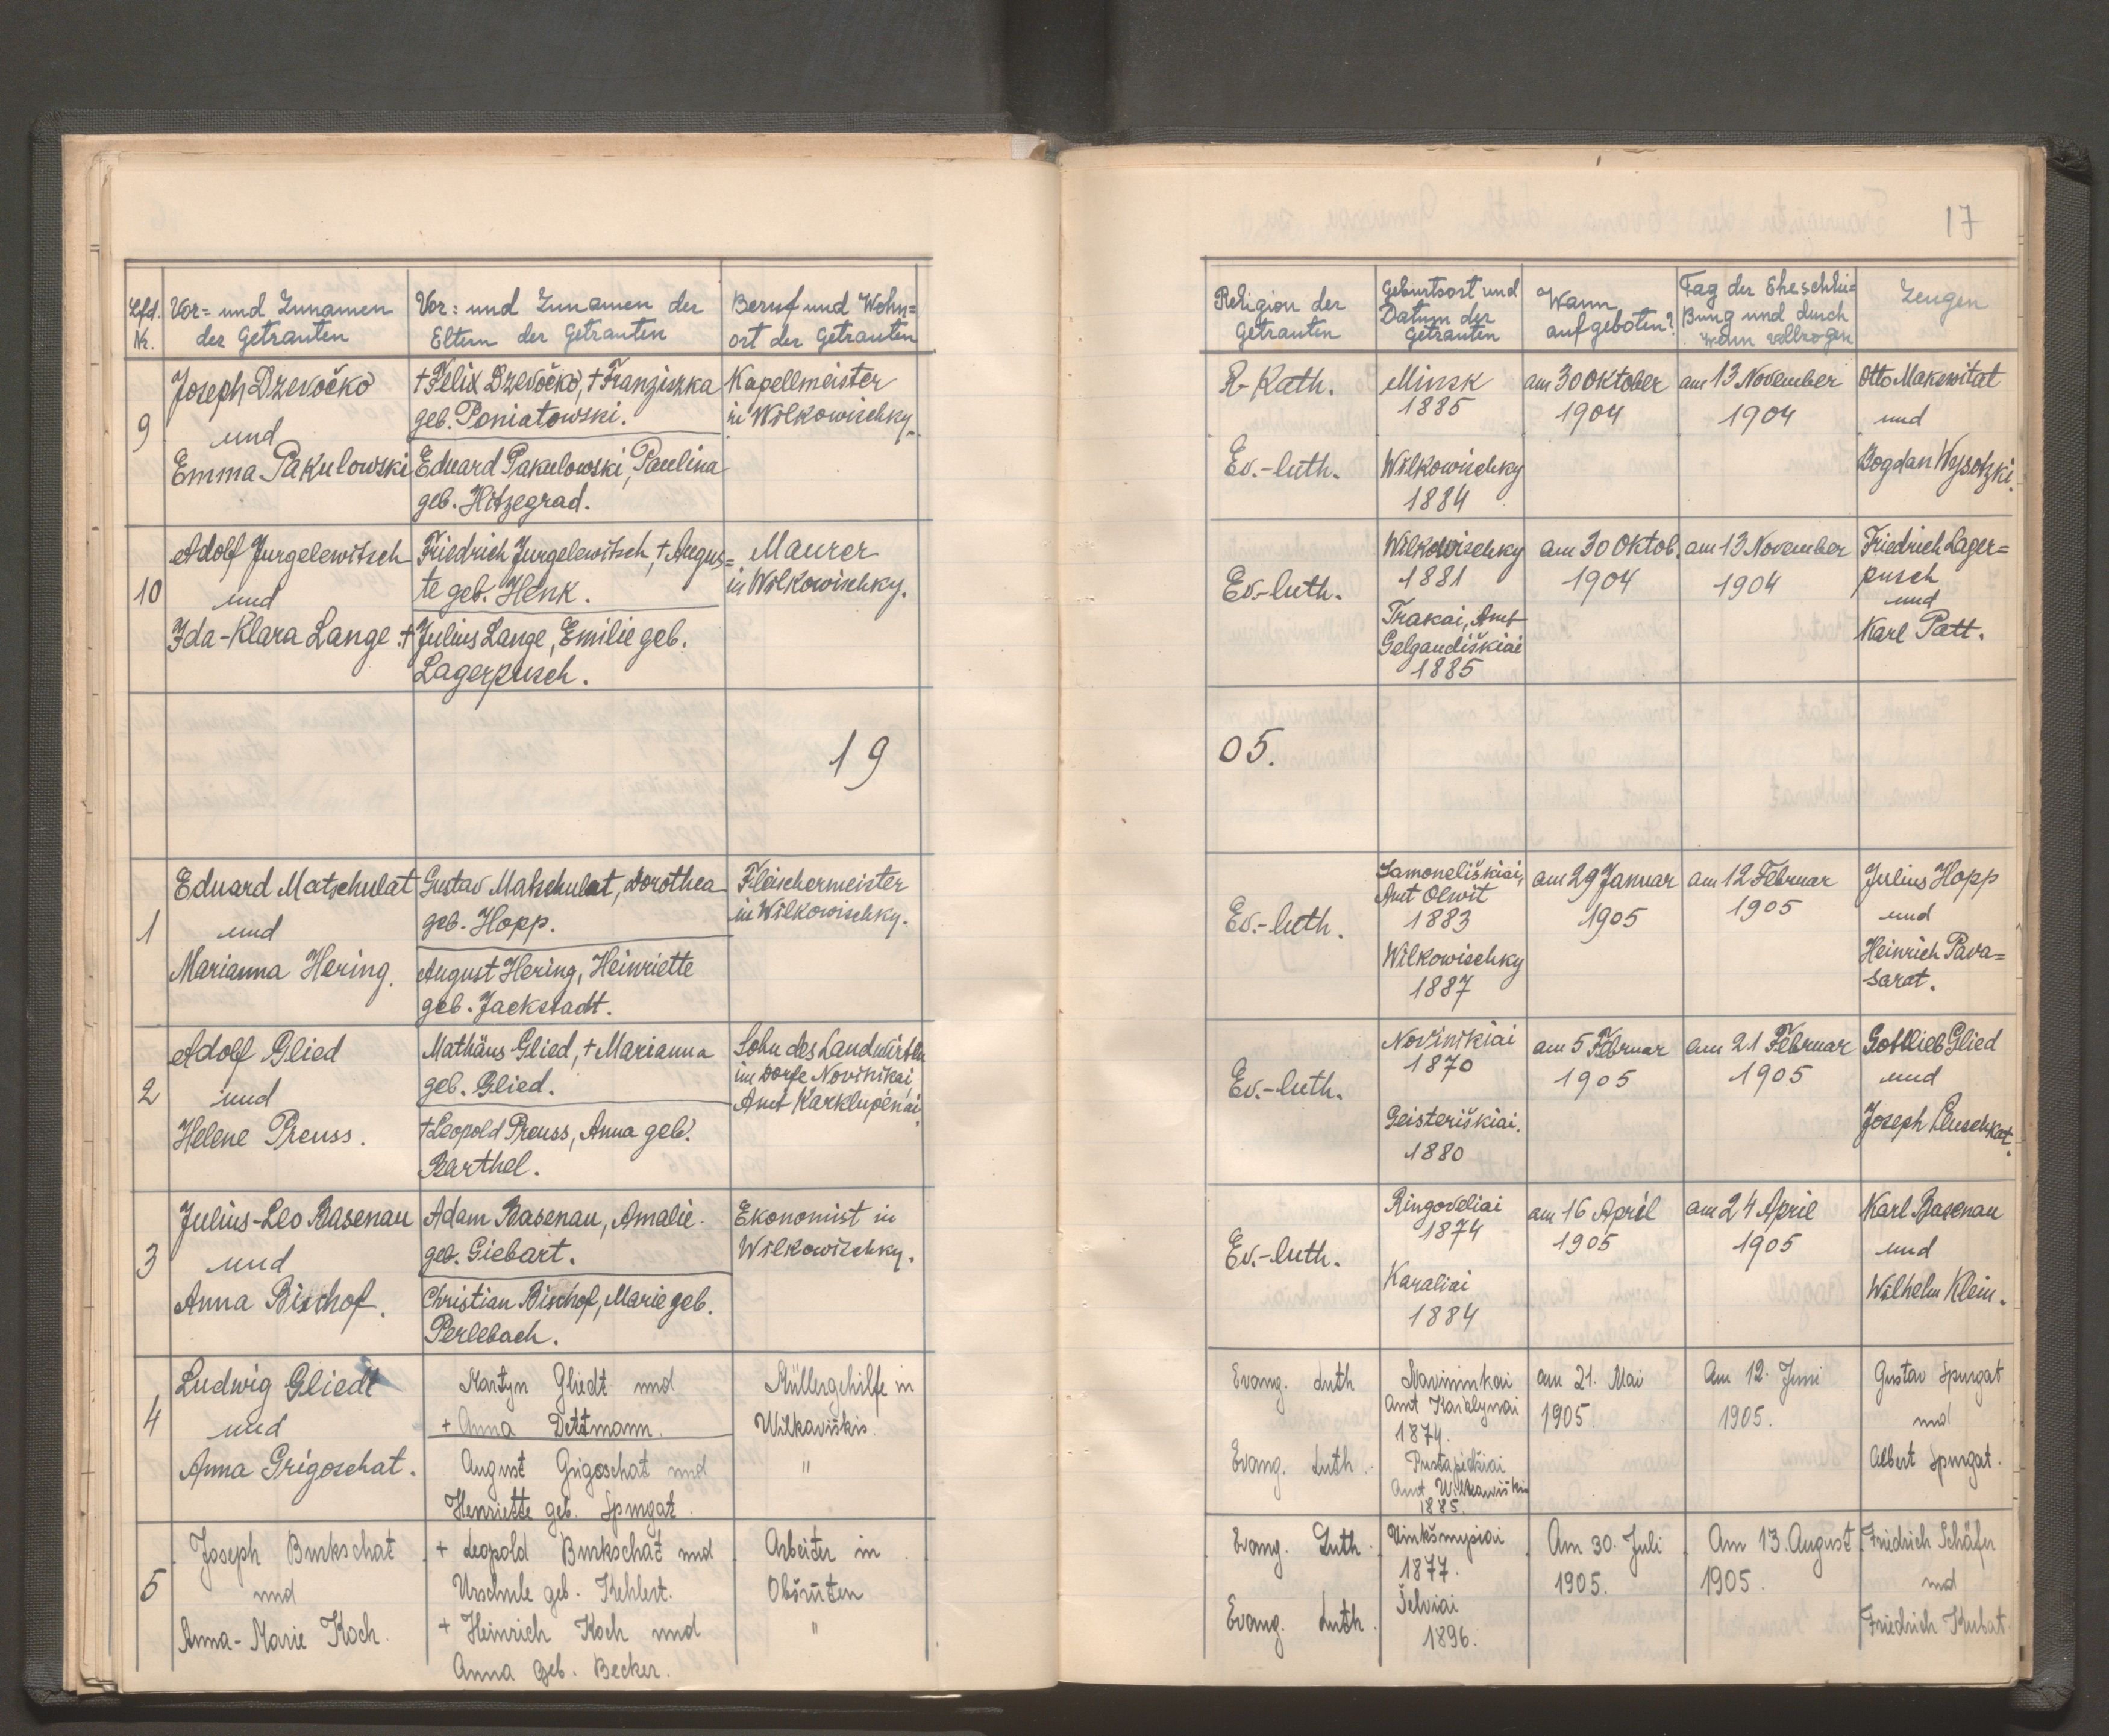 17
Lfd. Nr.
Vor- und Zunamen
der Getrauten
Vor- und Zunamen der
Eltern der Getrauten
Beruf und Wohn=
ort der Getrauten
9
Joseph Dzevočko
und
Emma Pakulowski
†Felix Dzevočko, †Franziszka
geb. Poniatowski.
Eduard Pakulowski, Paulina
geb. Hitzegrad.
Kapellmeister
in Wilkowischky.
10
Adolf Jurgelewitsch
und
Ida-Klara Lange.
Friedrich Jurgelewitsch, †Augus=
te geb. Henk.
†Julius Lange, Emilie geb.
Lagerpusch.
Maurer
in Wilkowischky.
19
1
Eduard Matschulat
und
Marianna Hering.
Gustav Matschulat, Dorothea
geb. Hopp.
August Hering, Heinriette
geb. Jackstadt.
Fleischermeister
in Wilkowischky.
2
Adolf Glied
und
Helene Preuss.
Mathäus Glied, †Marianna
geb. Glied.
†Leopold Preuss, Anna geb.
Barthel.
Sohn des Landwirten
im Dorfe Novinikai,
Amt Karklupenai.
3
Julius-Leo Basenau
und
Anna Bischof.
Adam Basenau, Amalie
geb. Giebart.
Christian Bischof, Marie geb.
Perlebach.
Ekonomist in
Wilkowischky.
4
Ludwig Gliedt
und
Anna Grigoschat.
Martyn Gliedt und
+ Anna Dettmann.
August Grigoschat und
Henriette geb. Spurgat.
Müllergehilfe in
Wilkaviškis.
"
5
Joseph Burkschat
und
Anna-Marie Koch.
+ Leopold Burkschat und
Urschule geb. Kehlert.
+ Heinrich Koch und
Anna geb. Becker.
Arbeiter in
Obšruten
"
Religion der
Getrauten
Geburtsort und
Datum der
Getrauten
Wann
aufgeboten?
Tag der Eheschlie=
ßung und durch
wenn vollzogen
Zeugen
R-Kath.
Ev.-luth.
Minsk
1885
Wilkowischky
1884
am 30 Oktober
1904
am 13 November
1904
Otto Makswitat
und
Bogdan Wysotzki.
Ev.-luth.
Wilkowischky
1881
Trakai, Amt
Gelgaudiškiai
1885
am 30 Oktob.
1904
am 13 November
1904
Friedrich Lager=
pusch
und
Karl Patt.
05.
Ev.-luth.
Samoneliškiai,
Amt Olwit
1883
Wilkowischky
1887
am 29 Januar
1905
am 12 Februar
1905
Julius Hopp
und
Heinrich Pava=
sarat.
Ev.-luth.
Novinikiai
1870
Geisteriškiai.
1880
am 5 Februar
1905
am 21 Februar
1905
Gottlieb Glied
und
Joseph Pluschkat.
Ev.-luth.
Ringoveliai
1874
Karaliai
1884
am 16 April
1905
am 24 April
1905
Karl Basenau
und
Wilhelm Klein.
Evang. Luth
Evang. Luth.
Navininkai
Amt
1874.
Pustapėdžiai
Amt Wilkawiškis
1885.
am 21. Mai
1905.
Am 12. Juni
1905.
Gustav Spurgat
und
Albert Spurgat.
Evang. Luth.
Evang. Luth.
Vinkšmypiai
1877.
Šelviai
1896.
Am 30. Juli
1905.
Am 13. August
1905.
Friedrich Schäfer
und
Friedrich Kubat.